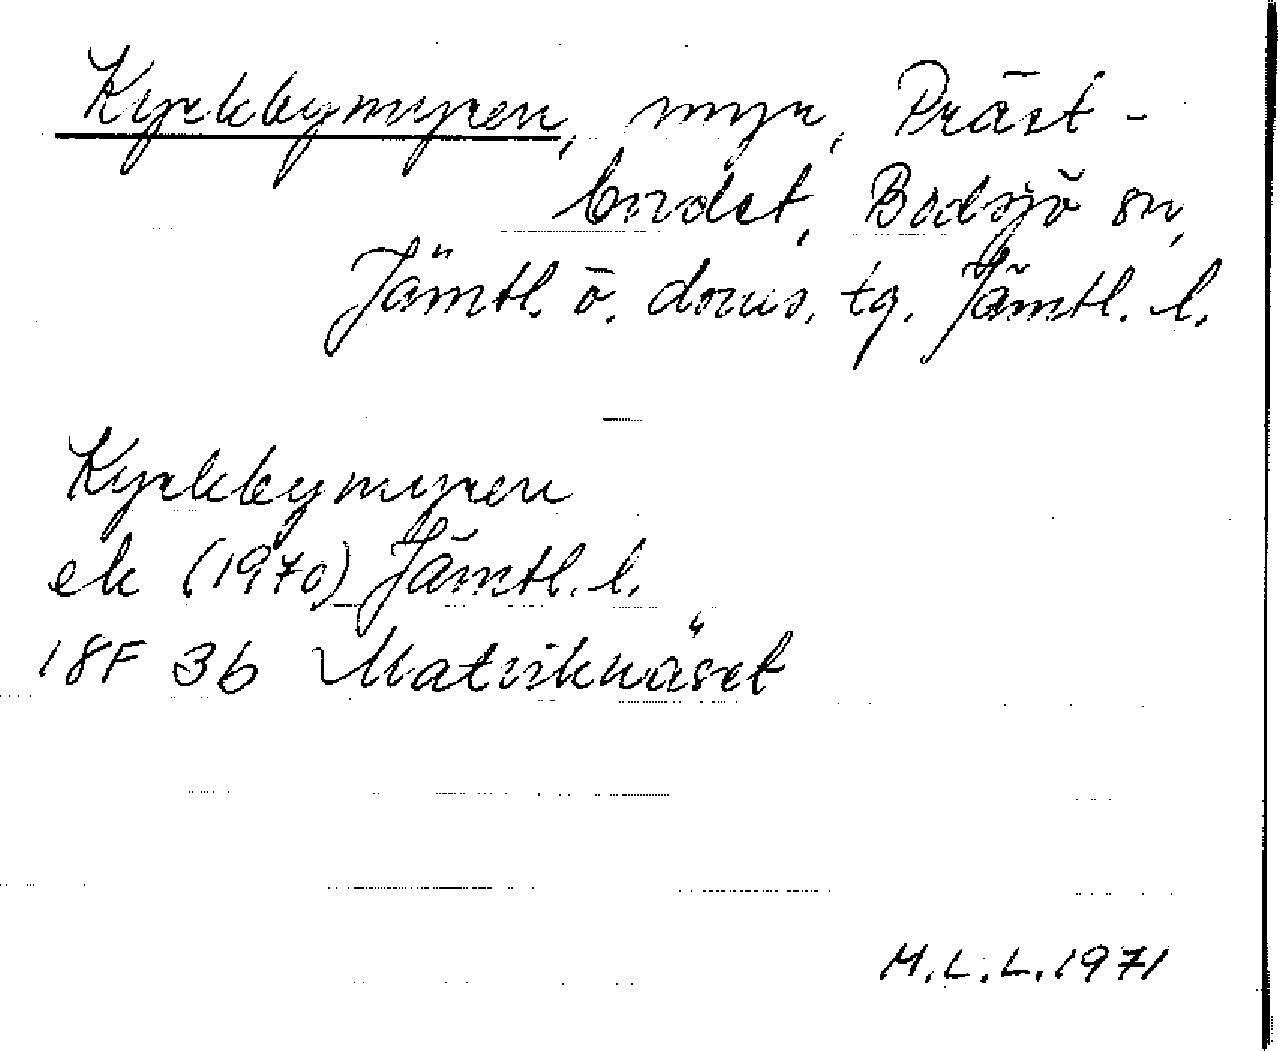 Kyrkbymyren, myr, Präst-
bordet, Bodsjö sn,
Jämtl. ö. doms. tg. Jämtl. l.
Kyrkbymyren
ek (1970) Jämtl. l.
18F 3b Matviknäset
M.L.L. 1971